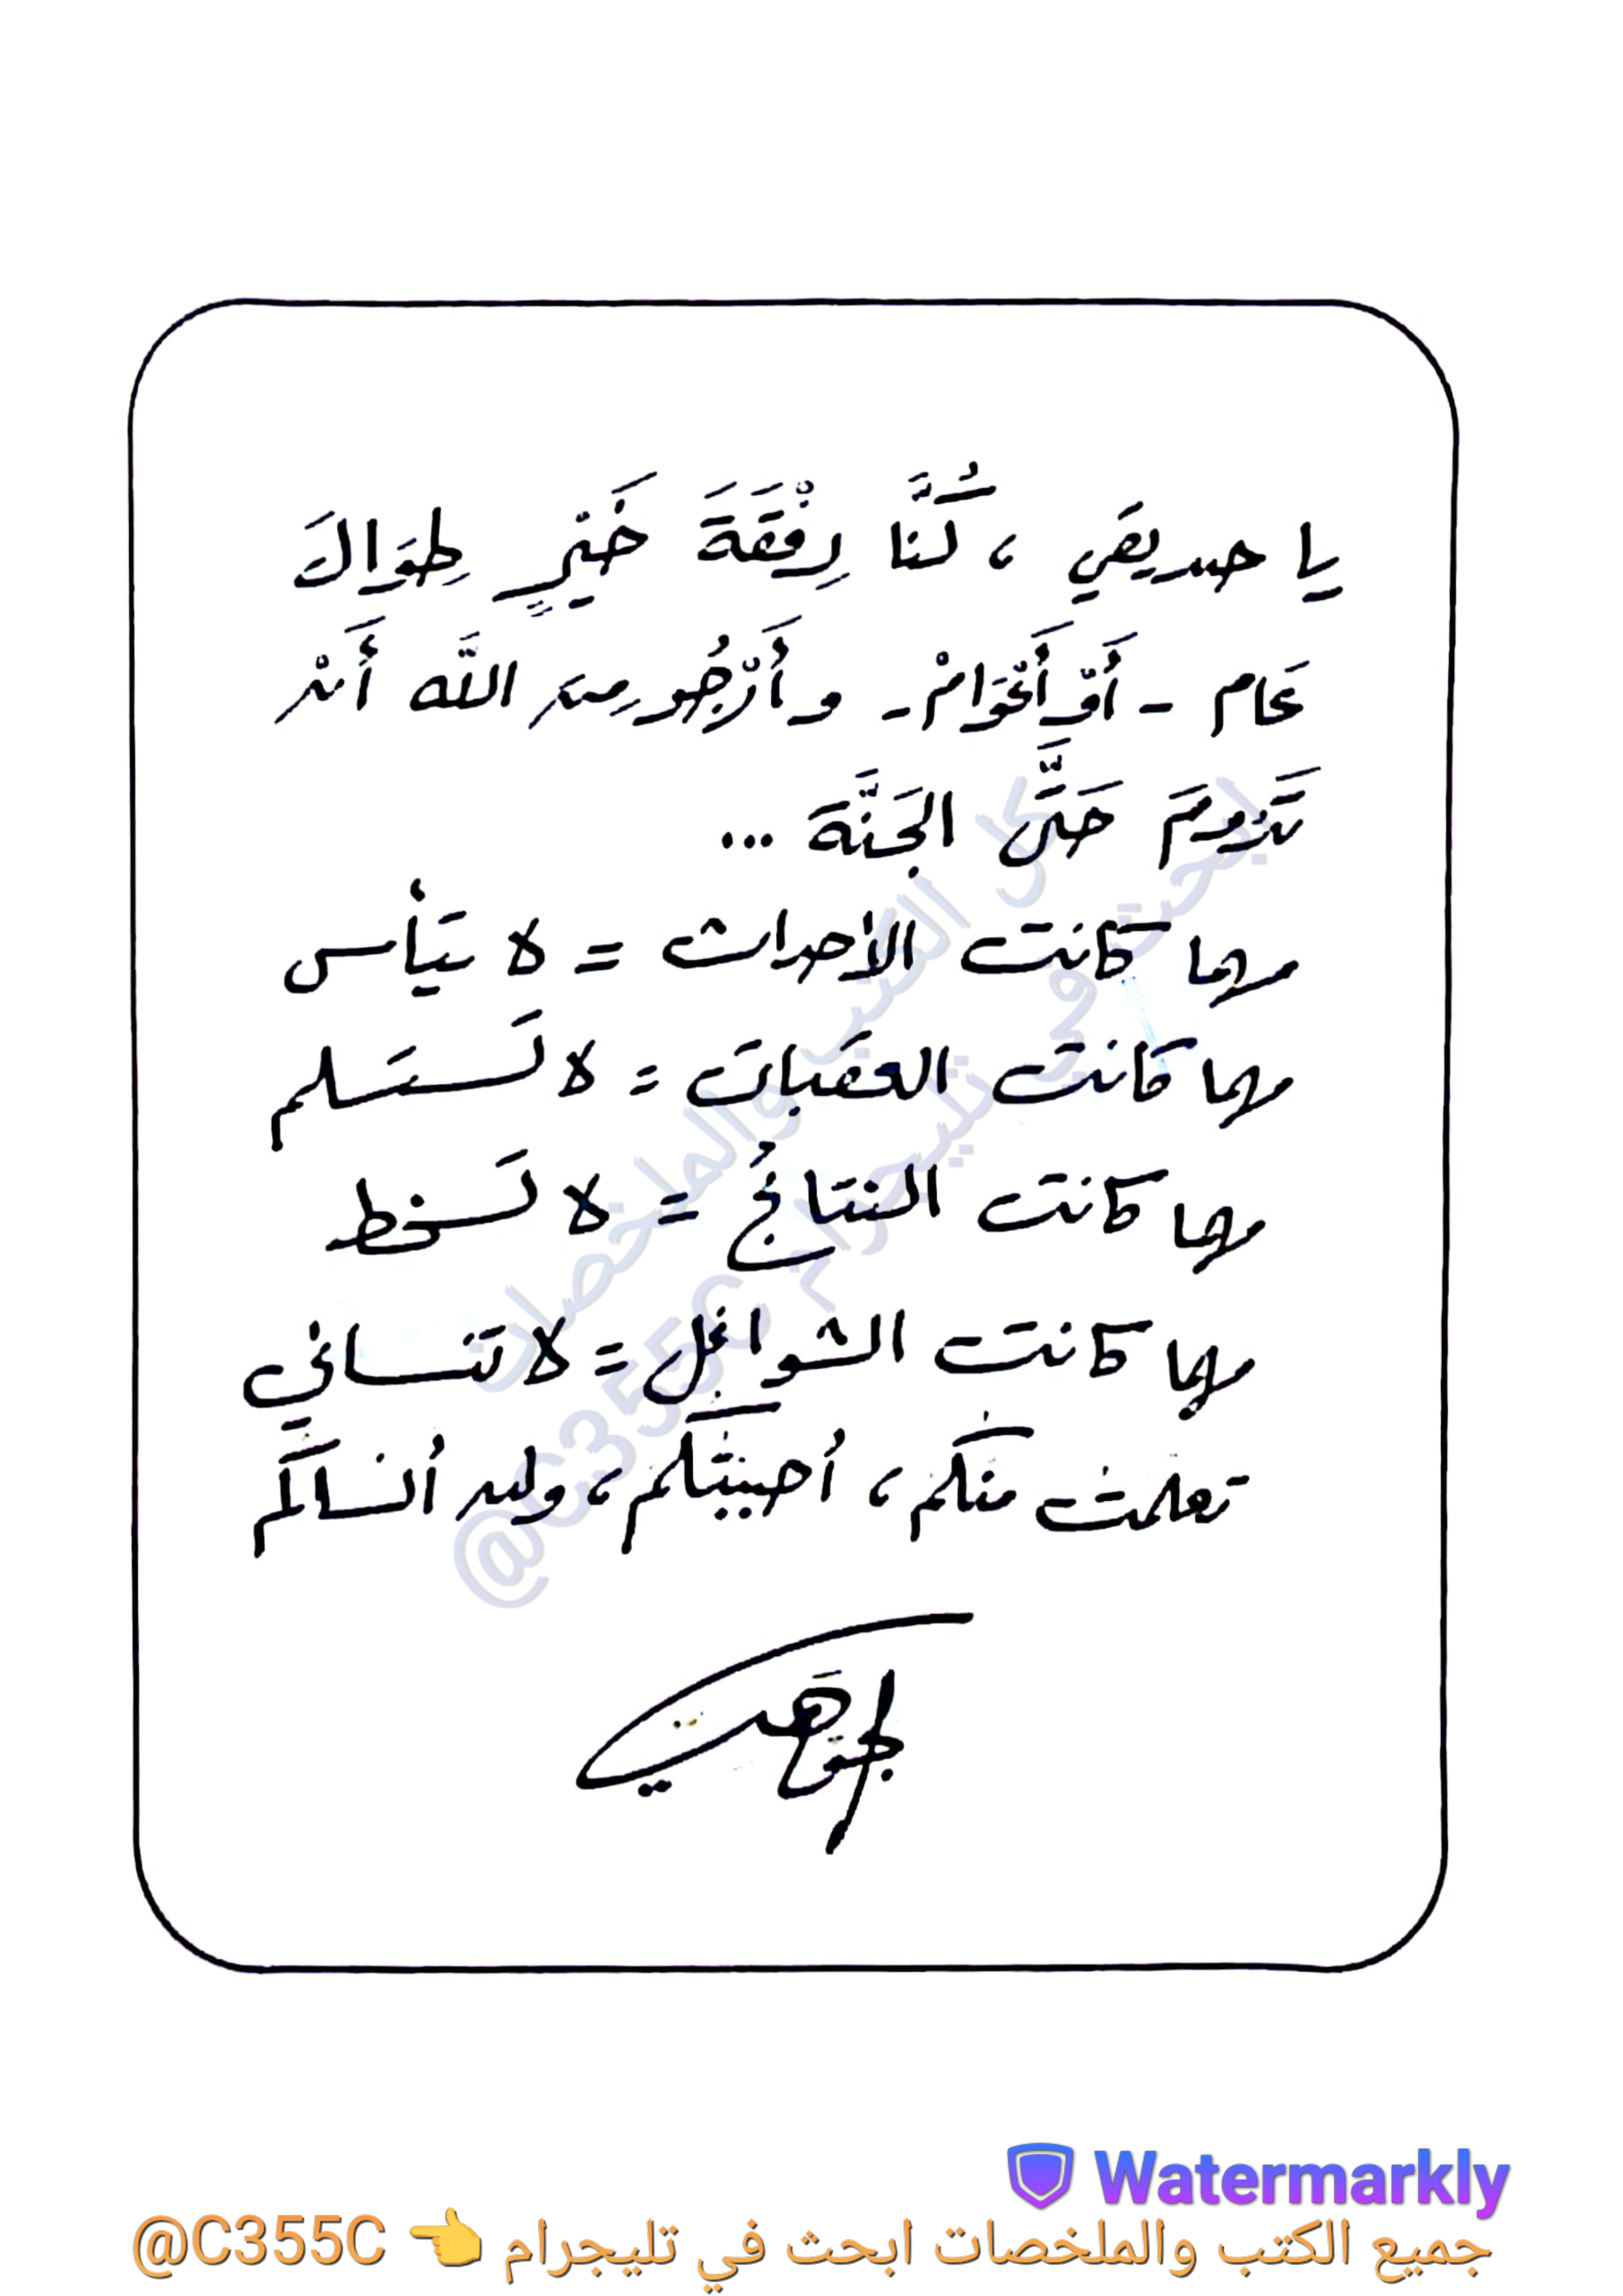 يا صديقي ، كُنَّا رِفْقَةَ خَيْرٍ طِوَالَ
عَام - أَوْ أَعْوَامْ - و أَرْجُو مِنَ اللَّه أَنْ
تَدُومَ حَتَّى الجَنَّةَ ...
مهما كانت الأحداث = لا تيأس
مهما كانت العقبات = لا تَستسلم
مهما كانت النتائجُ = لا تَسخط
مهما كانت الشواغل = لا تنساني
تعلمت منكم ، أحببتكم ، ولن أنساكم
كل الكتب والملخصات
ابحث في تليجرام
@C355C
Watermarkly
جميع الكتب والملخصات ابحث في تليجرام 👈 @C355C